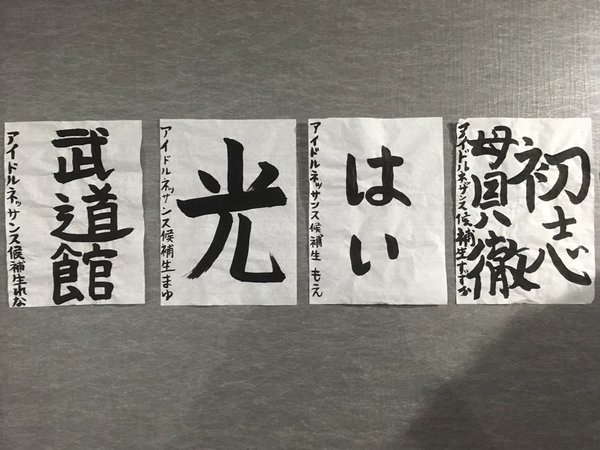 武道館
アイドルネッサンス候補生れな
光
アイドルネッサンス候補生まゆ
はい
アイドルネッサンス候補生 もえ
初志
貫徹
アイドルネッサンス候補生すずか